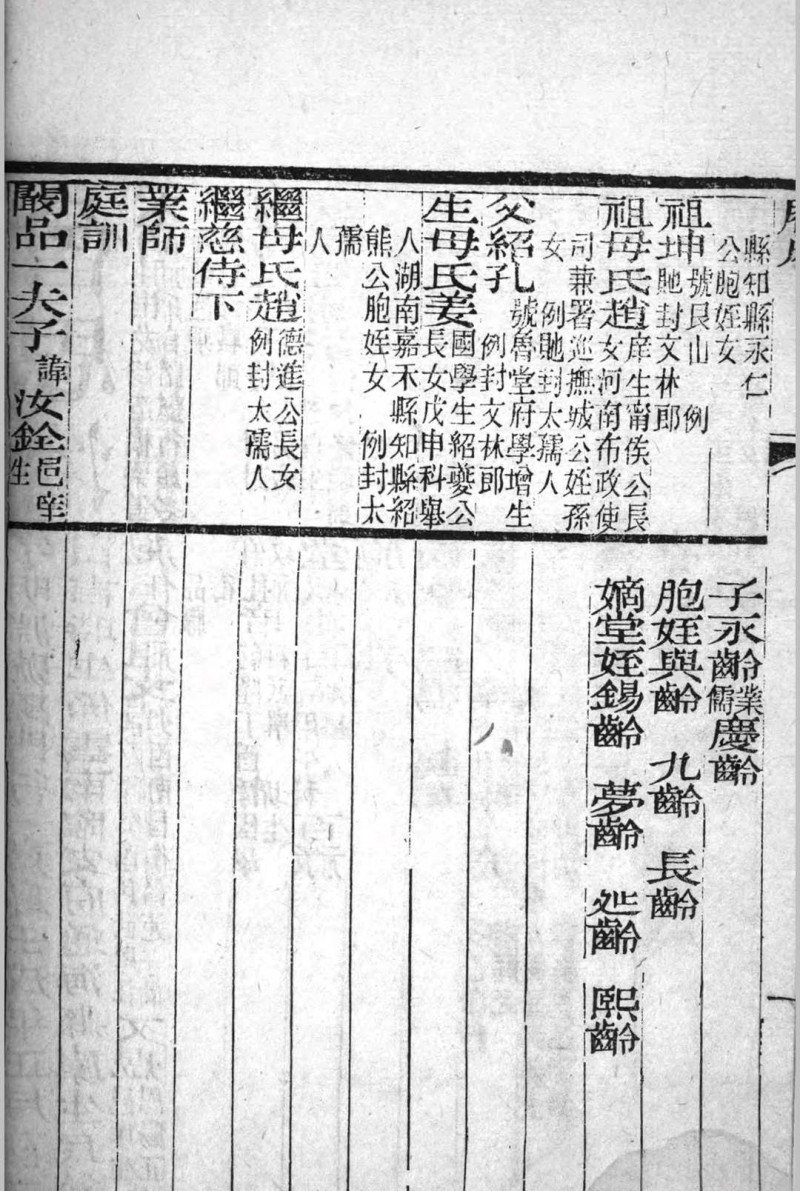 縣知縣永仁
公胞姪女
祖坤號艮山 例
貤封文林郎
祖母氏趙庠生甯俟公長
女河南布政使
司兼署巡撫城公姪孫
女 例貤封太孺人
父紹孔號魯堂府學增生
例封文林郎
生母氏姜國學生紹夔公
長女戊申科舉
人湖南嘉禾縣知縣紹
熊公胞姪女 例封太
孺
人
繼母氏趙德進公長女
例封太孺人
繼慈侍下
業師
庭訓
闞品一夫子諱汝銓邑庠
生
子永齡業儒慶齡
胞姪與齡 九齡 長齡
嫡堂姪錫齡 夢齡 延齡 熙齡